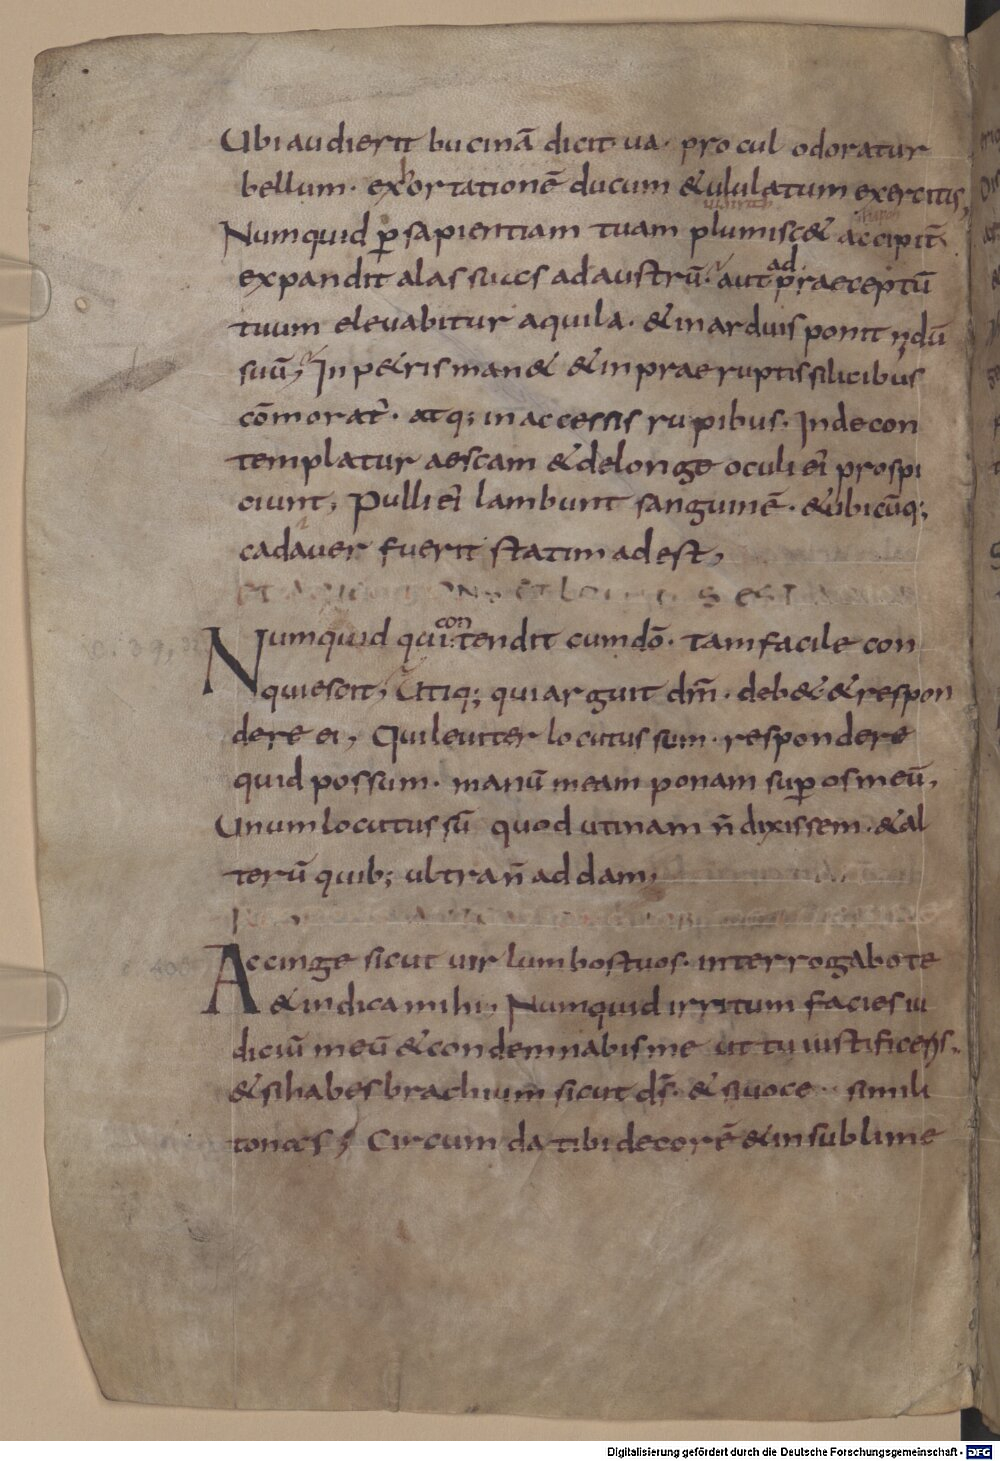 Ubi audierit bucinā dicit ua · procul odoratur
bellum · exhortationē ducum & ululatum exercitus,
Numquid ꝑ sapientiam tuam plumisc& accipit̄
expandit alas suas ad austrū · aut ad praeceptū
tuum eleuabitur aquila · & in arduis ponit nidū
suū, In p&ris man& & in praeruptis silicibus
cōmorat̄ · atq; inaccessis rupibus · Inde con
templatur aescam & de longe oculi ei prospi
ciunt, Pulli ei lambunt sanguinē · & ubicūq;
cadauer fuerit statim adest,
Numquid qui contendit cum dō · tam facile con
quiescit, Utiq; qui arguit dm̄ · deb& & respon
dere ei, Qui leuiter locutus sum · respondere
quid possum · manū meam ponam suꝑ os meū,
Unum locutus sū quod utinam n̄ dixissem · & al
terū quib; ultra n̄ addam,
Accinge sicut uir lumbos tuos · interrogabo te
& indica mihi, Numquid irritum facies iu
diciū meū & condemnabis me ut tu iustificeris ·
& si habes brachium sicut ds̄ · & si uoce simili
tonas, Circumda tibi decorē & in sublime
Digitalisierung gefördert durch die Deutsche Forschungsgemeinschaft - DFG